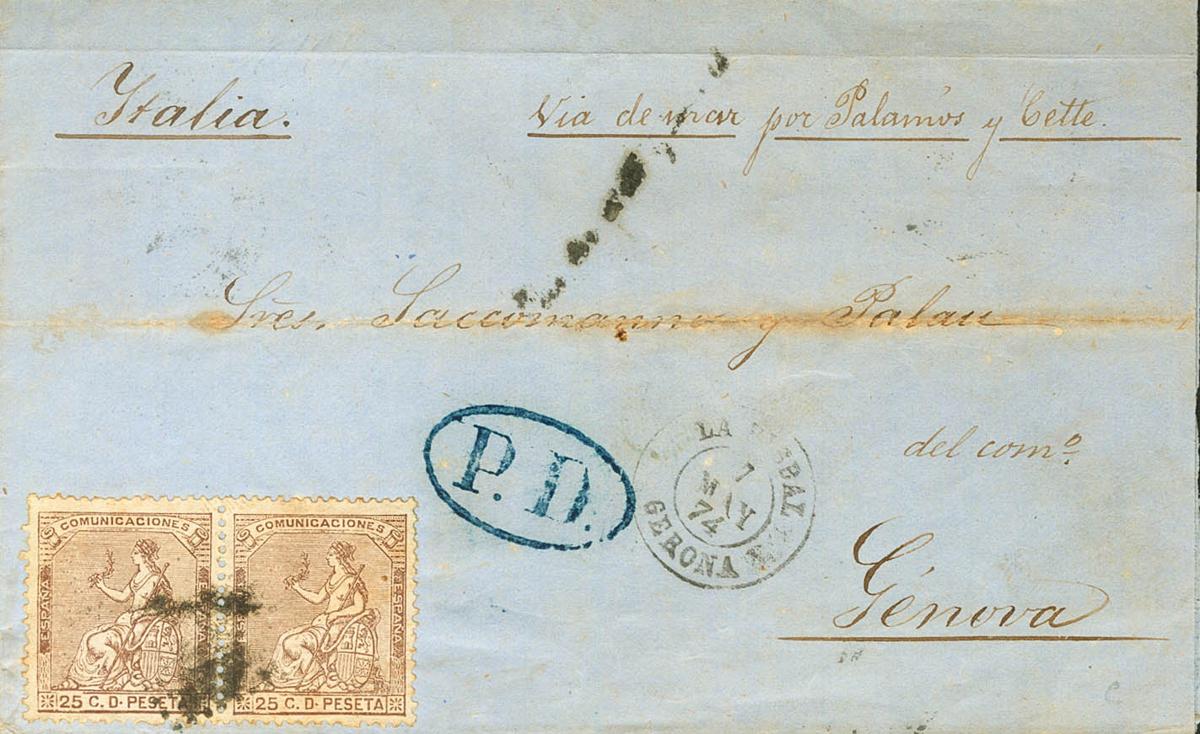 Italia.
Via de mar por Palamós y Cette.
Sres. Saccomanno y Palau
del como.
Génova
P. D.
LA
1
MAY
74
GERONA
COMUNICACIONES
ESPAÑA
ESPAÑA
25 C. D. PESETA
COMUNICACIONES
ESPAÑA
ESPAÑA
25 C. D. PESETA